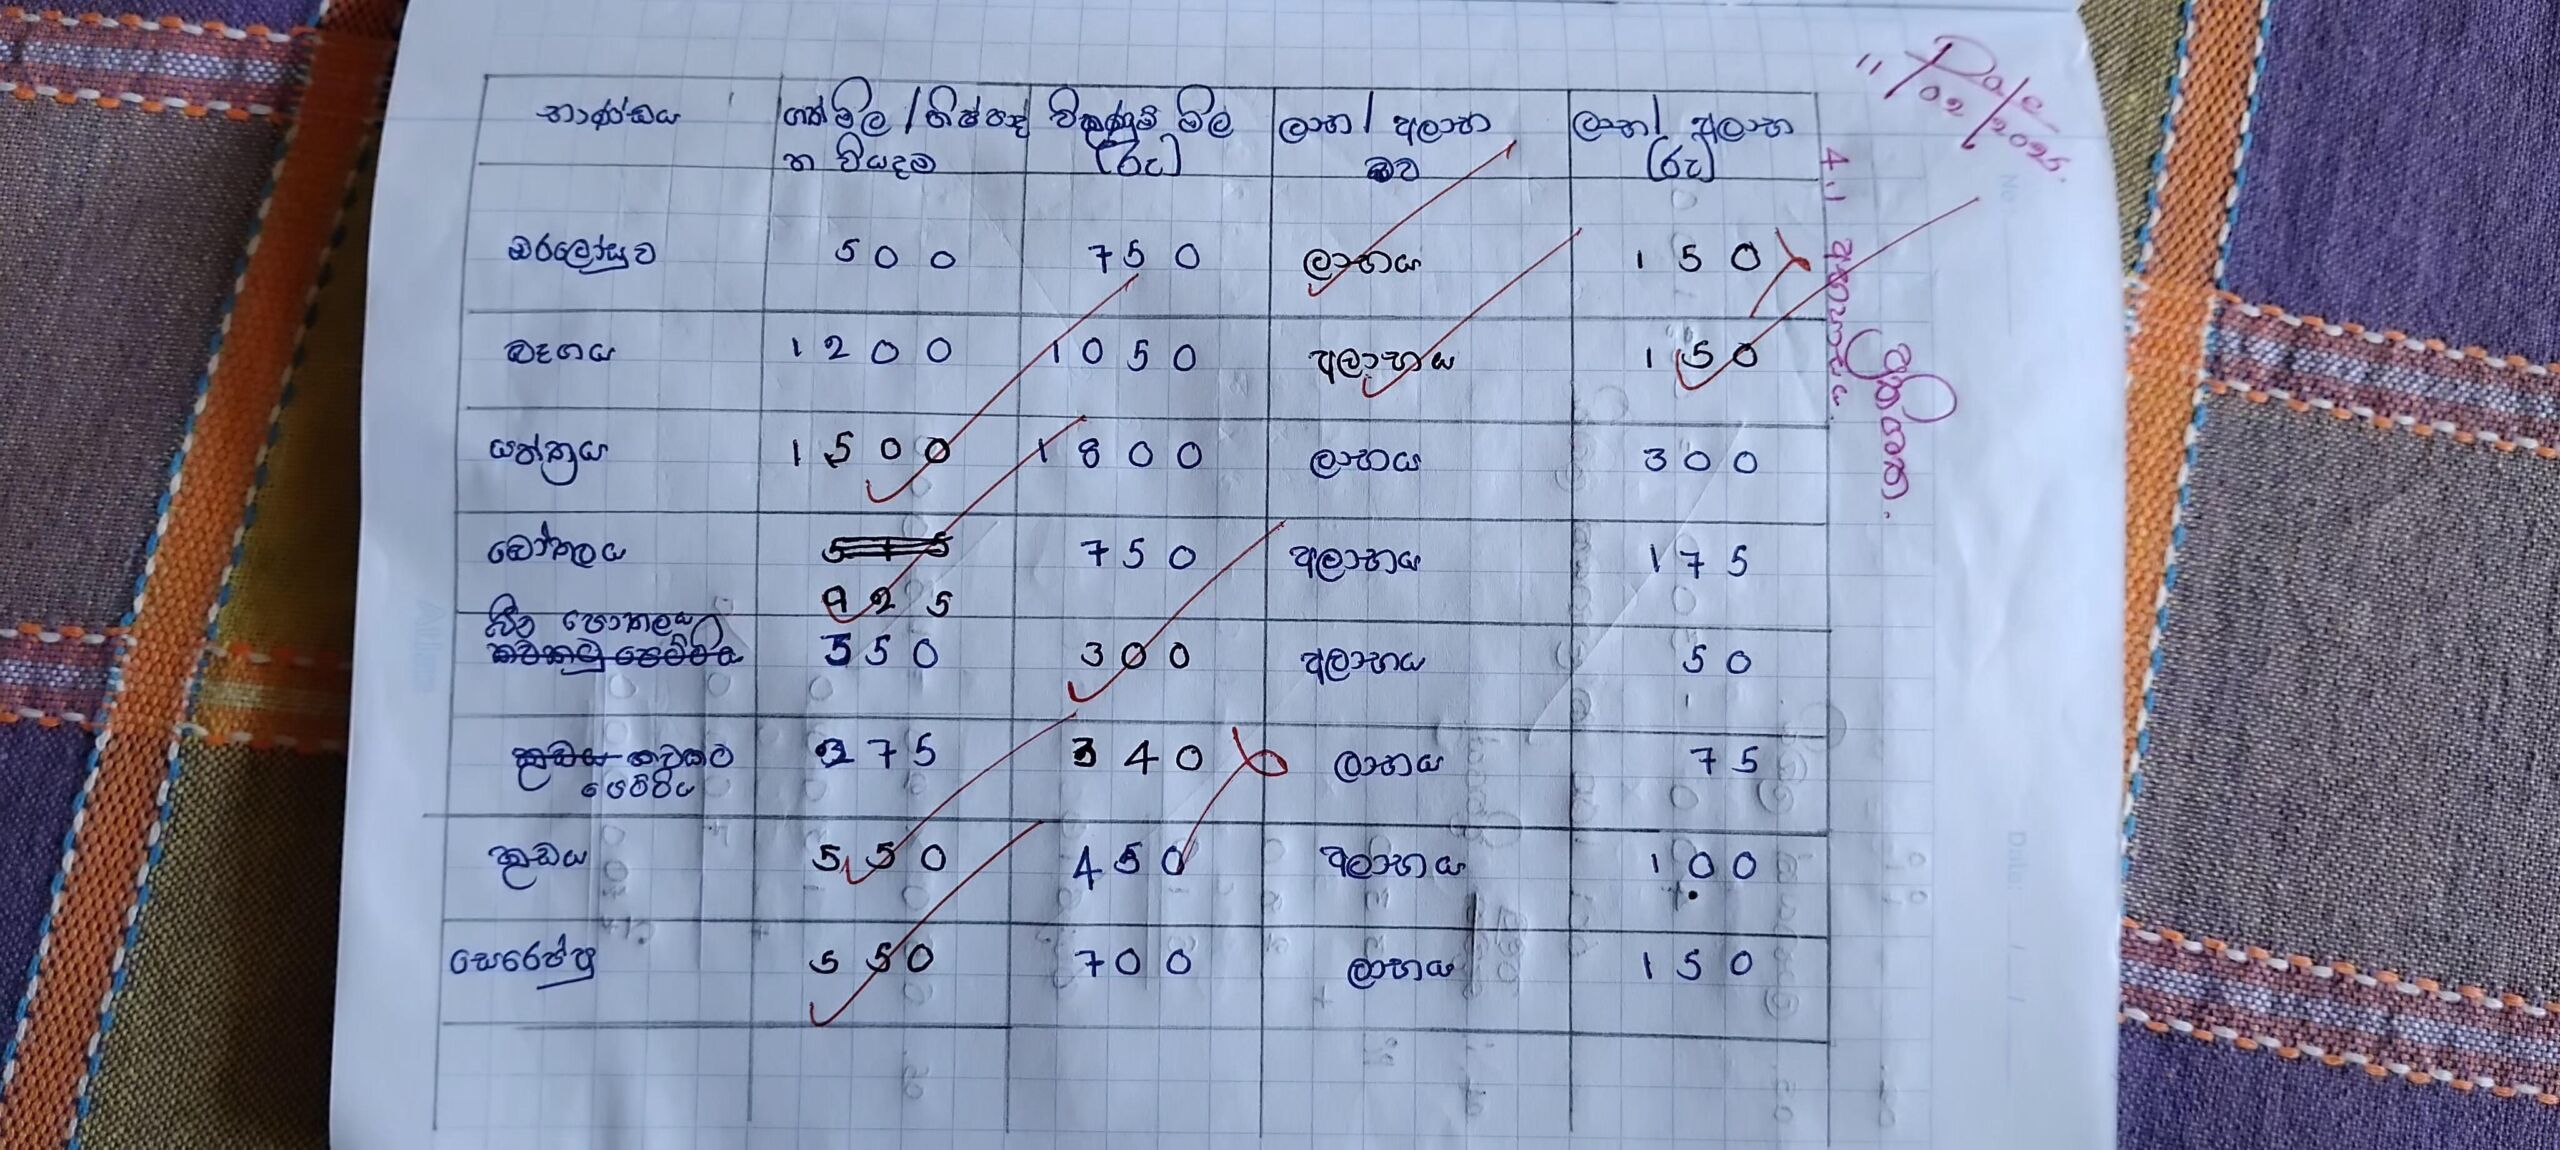 Date
11/02/2025.
ප්‍රතිශත.
4.1 අභ්‍යාසය.
භාණ්ඩය ගත් මිල / නිෂ්පාද විකුණුම් මිල ලාභ / අලාභ ලාභ / අලාභ
න වියදම (රු) බව (රු)
ඔරලෝසුව 500 750 ලාභය 150
බෑගය 1200 1050 අලාභය 150
යන්ත්‍රය 1500 1800 ලාභය 300
බෝතලය 575 750 අලාභය 175
925
බිත පොතලය
කවකටු පෙට්ටිය 350 300 අලාභය 50
කුඩය කවකටු 275 340 ලාභය 75
පෙට්ටිය
කුඩය 550 450 අලාභය 100
සෙරෙප්පු 550 700 ලාභය 150